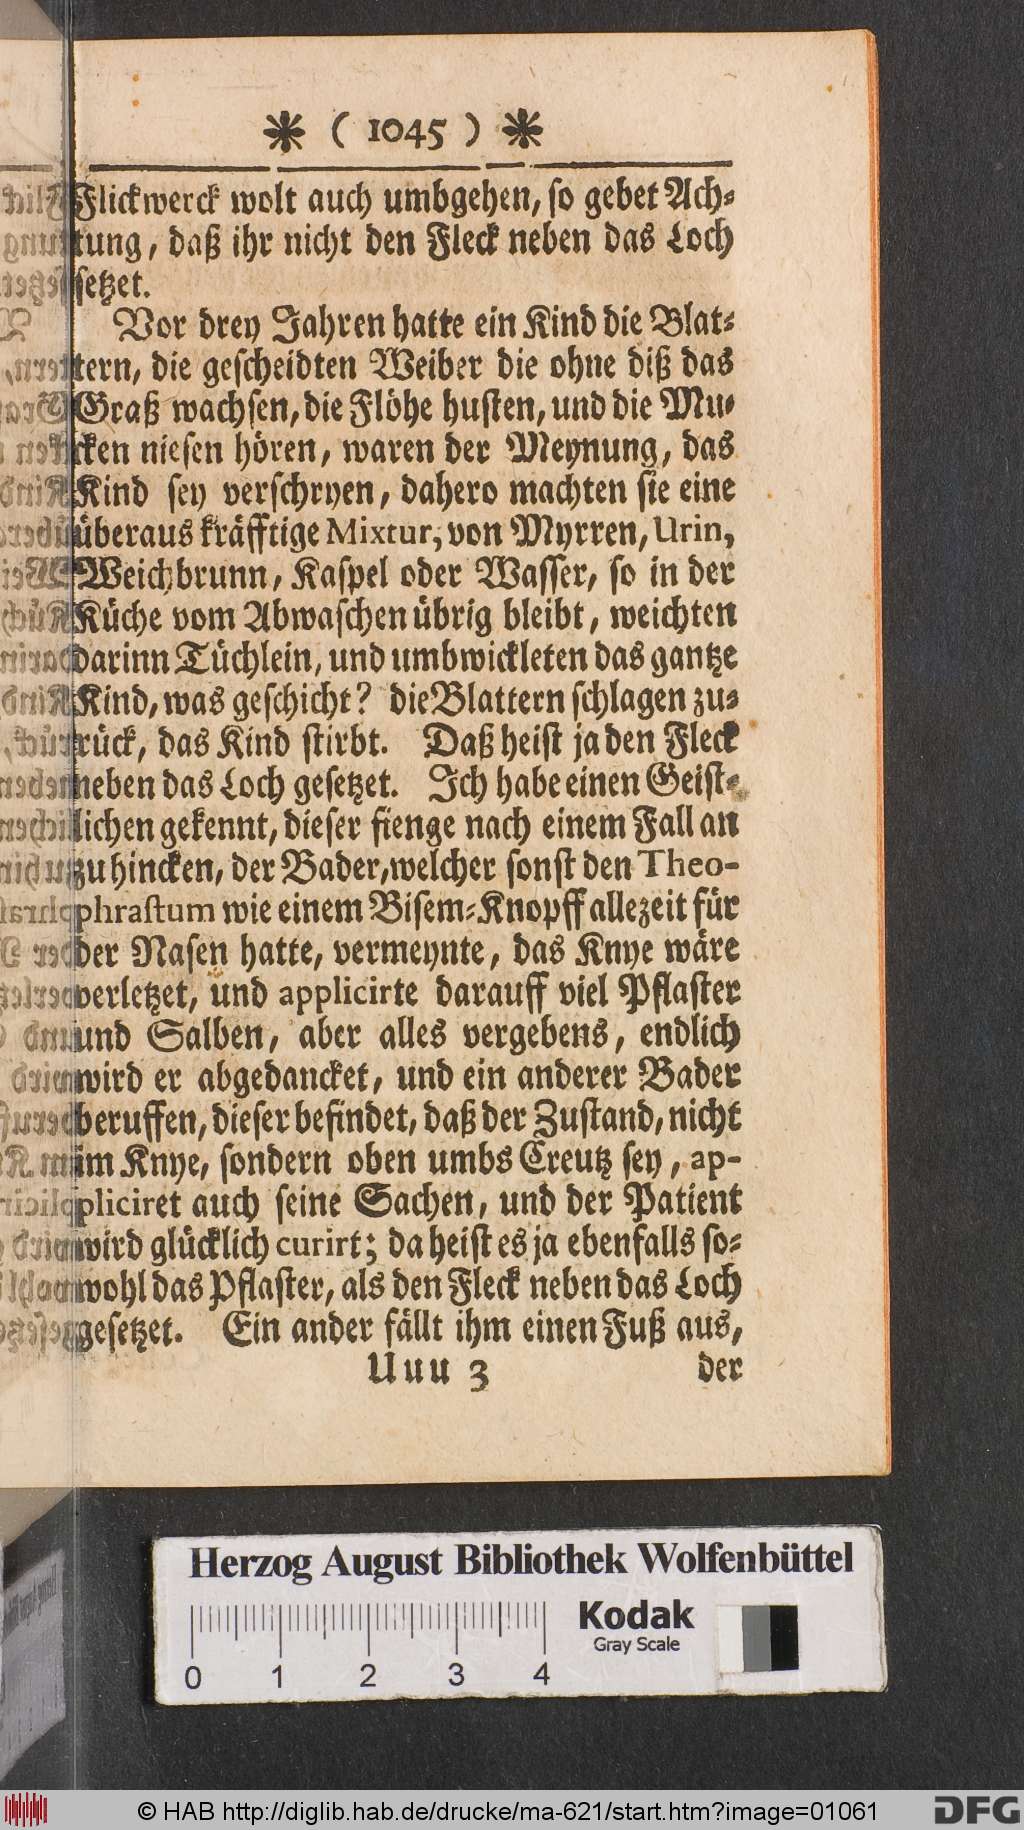 * ( 1045 ) *
Flickwerck wolt auch umbgehen, so gebet Ach-
tung, daß ihr nicht den Fleck neben das Loch
setzet.
Vor drey Jahren hatte ein Kind die Blat-
tern, die gescheidten Weiber die ohne diß das
Graß wachsen, die Flöhe husten, und die Mu-
cken niesen hören, waren der Meynung, das
Kind sey verschryen, dahero machten sie eine
überaus kräfftige Mixtur, von Myrren, Urin,
Weichbrunn, Kaspel oder Wasser, so in der
Küche vom Abwaschen übrig bleibt, weichten
darinn Tüchlein, und umbwickleten das gantze
Kind, was geschicht? die Blattern schlagen zu-
rück, das Kind stirbt. Daß heist ja den Fleck
neben das Loch gesetzet. Ich habe einen Geist-
lichen gekennt, dieser fienge nach einem Fall an
zu hincken, der Bader, welcher sonst den Theo-
phrastum wie einem Bisem-Knopff allezeit für
der Nasen hatte, vermeynte, das Knye wäre
verletzet, und applicirte darauff viel Pflaster
und Salben, aber alles vergebens, endlich
wird er abgedancket, und ein anderer Bader
beruffen, dieser befindet, daß der Zustand, nicht
im Knye, sondern oben umbs Creutz sey, ap-
pliciret auch seine Sachen, und der Patient
wird glücklich curirt; da heist es ja ebenfalls so-
wohl das Pflaster, als den Fleck neben das Loch
gesetzet. Ein ander fällt ihm einen Fuß aus,
Uuu 3 der
Herzog August Bibliothek Wolfenbüttel
Kodak
Gray Scale
0 1 2 3 4
© HAB http://diglib.hab.de/drucke/ma-621/start.htm?image=01061
DFG